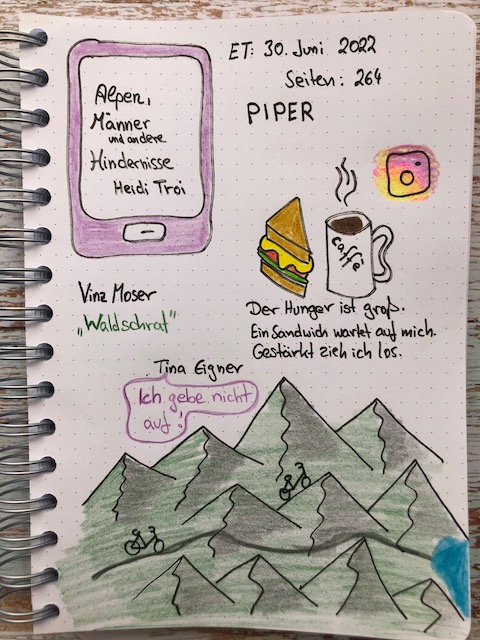 ET: 30. Juni 2022
Seiten: 264
PIPER
Alpen,
Männer
und andere
Hindernisse
Heidi Troi
caffé
Vinz Moser
„Waldschrat"
Der Hunger ist groß.
Ein Sandwich wartet auf mich.
Gestärkt zieh ich los.
Tina Eigner
Ich gebe nicht
auf!